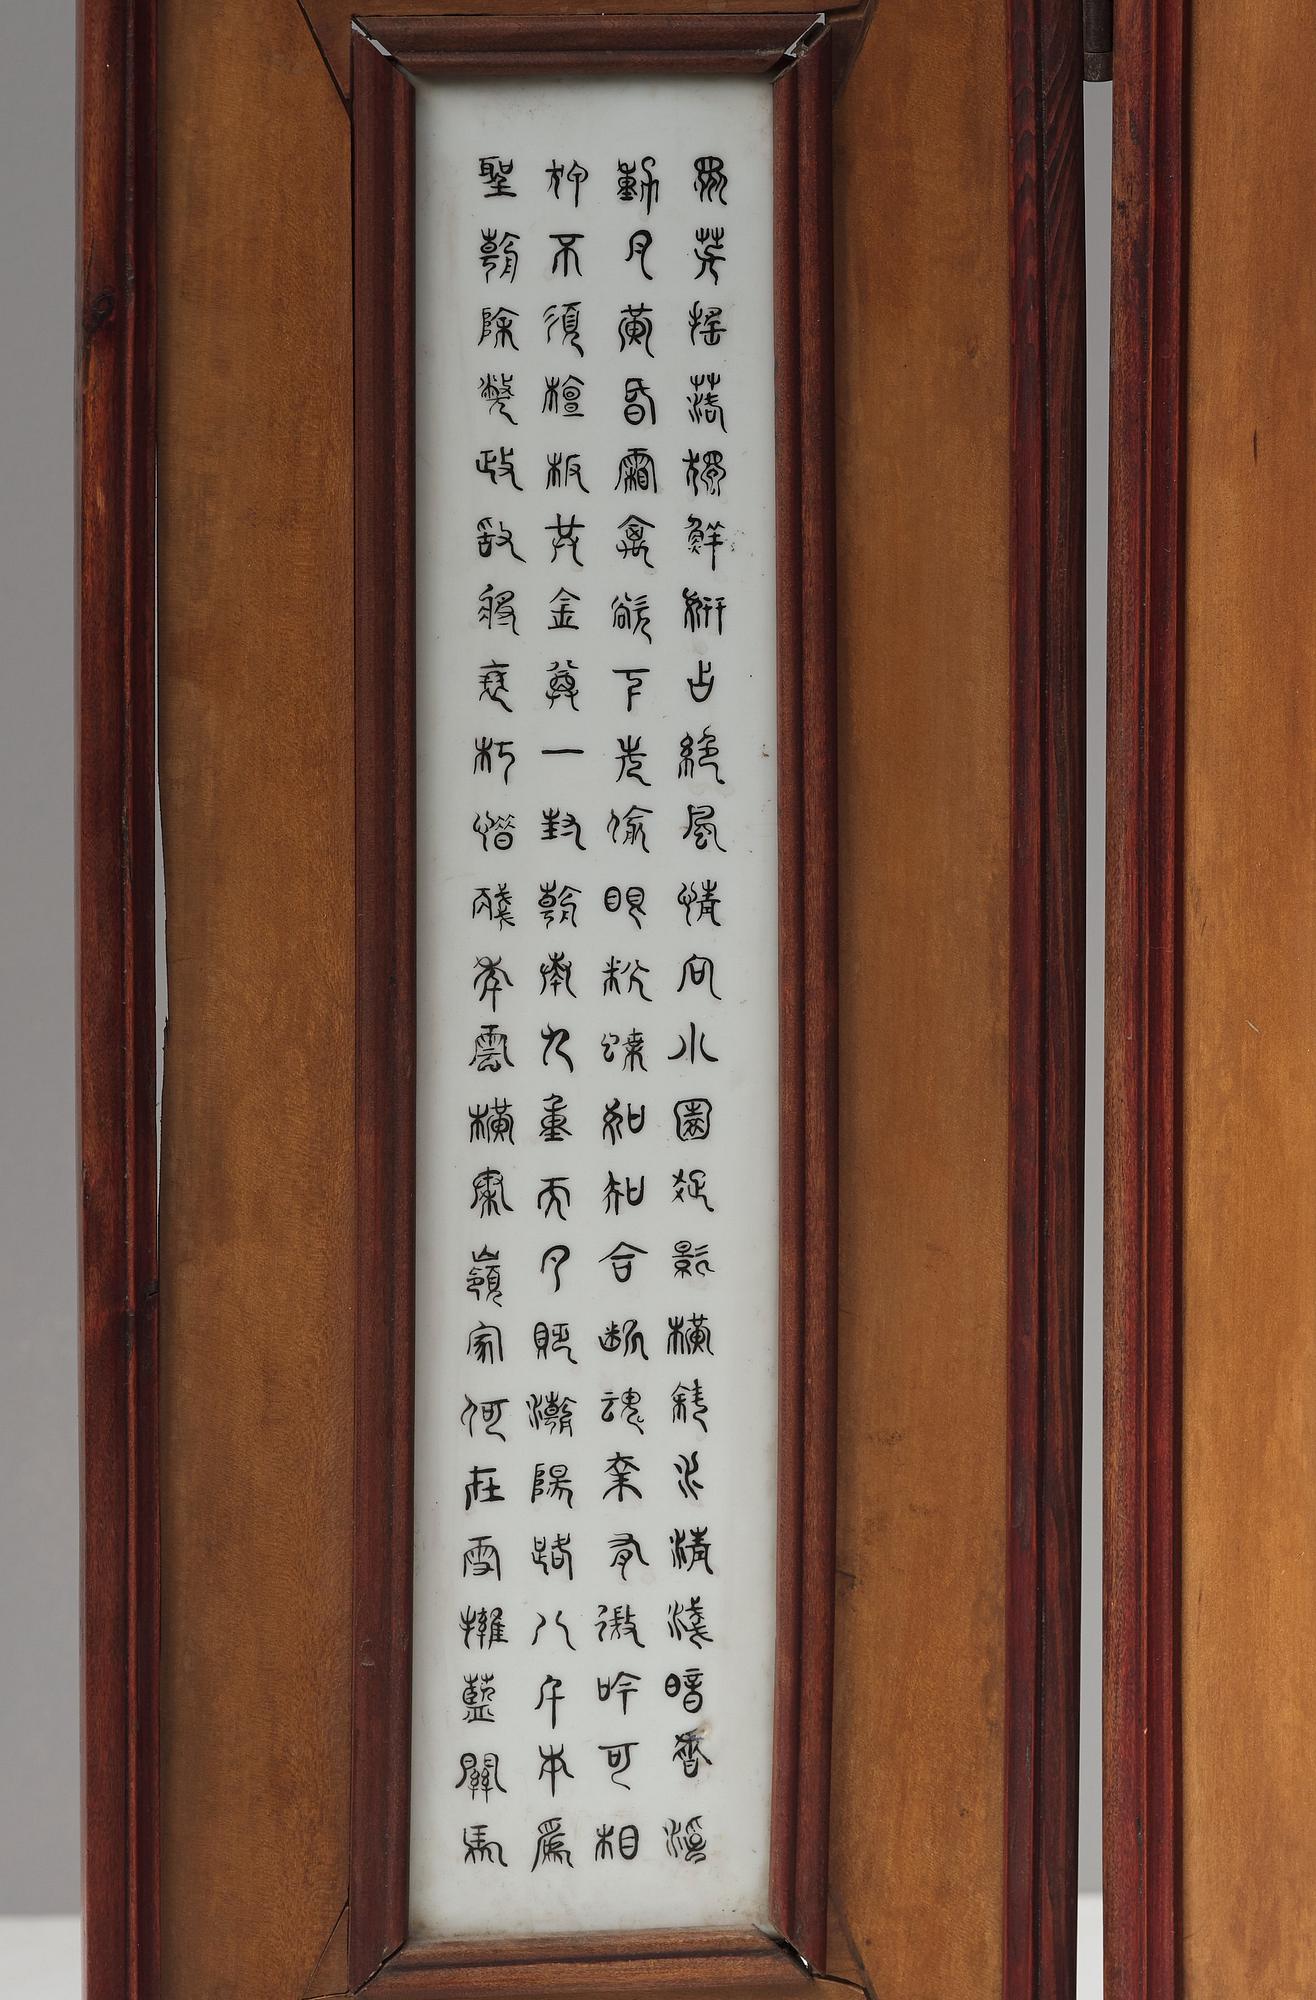 眾芳搖落獨鮮妍占絕風情向小園疏影橫斜水清淺暗香浮
動月黃昏霜禽欲下先偷眼粉蝶如知合斷魂幸有微吟可相
狎不須檀板共金尊一封朝奏九重天夕貶潮陽路八千本為
聖朝除弊政敢將衰朽惜殘年雲橫秦嶺家何在雪擁藍關馬